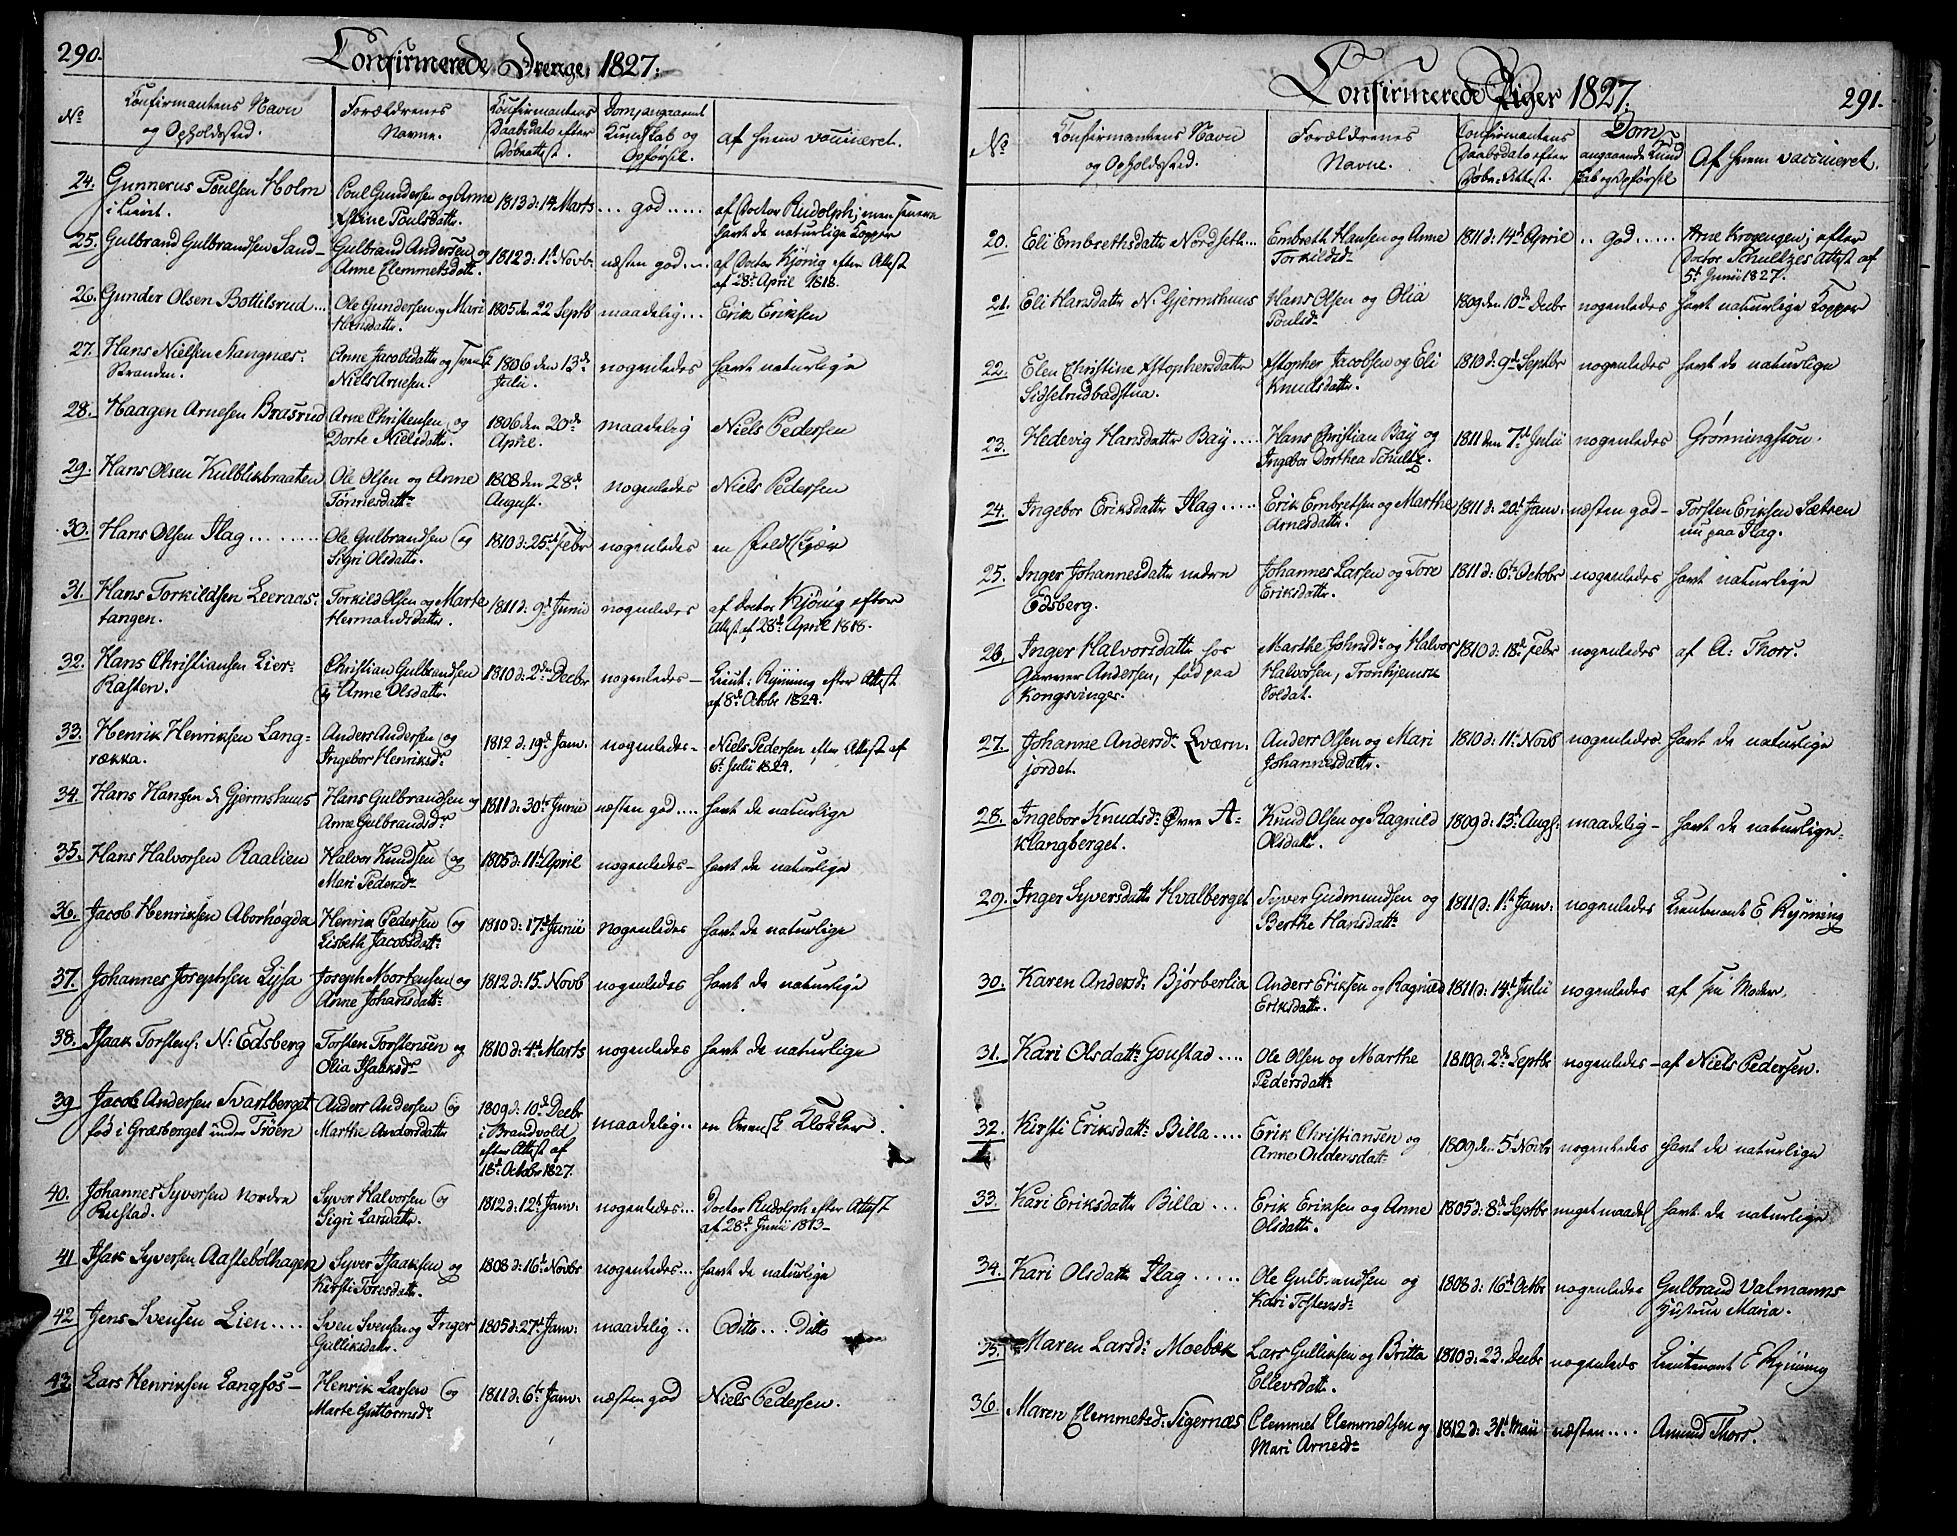 290.
Confirmerede Drenge, 1827.
No
Confirmantens Navn
og Opholdssted.
Forældrenes
Navne.
Confirmantens
Daabsdato efter
Døbeattest.
Dom angaaende
Kundskab og
Opførsel.
af hvem vaccineret.
24. Gunnerus Poulsen Holm
i Lieut.
Poul Gundersen og Anne
Stine Poulsdattr.
1813 d: 14 Marts
... god .....
af Doctor Rudolph; men senere
havt de naturlige Kopper
25. Gulbrand Gulbrandsen Sand-
Gulbrand Andersen og
Anne Clemmetsdattr.
1812 d: 1st Novb.
næsten god...
af Doctor Kjønig efter Attest
af 28de April 1818.
26. Gunder Olsen Bottilsrud...
Ole Gundersen og Mari
Hansdattr.
1805 d. 22 Septb
maadelig...
Erik Eriksen
27. Hans Nielsen Kangnæs-
Stranden.
Anne Jacobsdattr og
Niels Arnesen.
1806 den 13de
Julii.
nogenledes
havt naturlige
28. Haagen Arnesen Brasrud
Arne Christensen og
Dorte Nielsdattr.
1806 den 20de
April.
maadelig
Niels Pedersen
29. Hans Olsen Kulblikbraaten
Ole Olsen og Anne
Tønnesdattr
1808 den 28de
August.
nogenledes
Niels Pedersen
30. Hans Olsen Flag .........
Ole Gulbrandsen og
Sigri Olsdattr.
1810 d: 25de Febr
nogenledes
en Feldtskjær
31. Hans Torkildsen Leeraas-
tangen.
Torkild Olsen og Marte
Hermandsdattr.
1811 d: 9de Junii
nogenledes
af Doctor Kjønig efter
Attest af 28de April 1818.
32. Hans Christiansen Lier-
Kasten.
Christian Gulbrandsen
og Anne Olsdattr.
1810 d: 2den Decbr
nogenledes -
Lieut: Rynning efter Attest
af 8de Octobr 1824.
33. Henrik Henriksen Lang-
rækka.
Anders Andersen og
Ingebor Henriksdr
1812 d: 19de Janv.
nogenledes -
Niels Pedersen efter Attest af
6te Julii 1824.
34. Hans Hansen S. Gjermshuus
Hans Gulbrandsen og
Anne Gulbrandsdr
1811 d: 30te Junii
næsten god....
havt de naturlige
35. Hans Halvorsen Raalien
Halvor Knudsen og
Mari Pedersdr
1805 d: 11te April
nogenledes -
havt de naturlige
36. Jacob Henriksen Aborhøgda
Henrik Pedersen og
Lisbeth Jacobsdattr
1810 d: 17de Junii
nogenledes
havt de naturlige
37. Johannes Josephsen Lyssa
Joseph Mortensen og
Anne Johansdattr
1812 d: 15. Novb
nogenledes
havt de naturlige
38. Isaak Torstens: N: Edsberg
Torsten Torstensen og
Olia Isaaksdr
1810 d: 4de Marts
nogenledes
havt de naturlige
39. Jacob Andersen Svartberget
fød i Græsberget under Trøen
Anders Andersen og
Marthe Andersdatter
1809 d: 10de Decbr
i Brandvold
efter Attest af
18de Octobr 1827.
maadelig..
en Svensk Klokker.
40. Johannes Syversen nordre
Rustad.
Syver Halvorsen og
Sigri Larsdattr.
1812 d: 12te Janv.
nogenledes...
Doctor Rudolph efter Attest
af 28de Junii 1813-
41 Isak Syversen Aastebølhagen
Syver Isaaksen og
Kirsti Toresdattr.
1808 d: 16de Novbr
nogenledes...
havt de naturlige
42 Jens Svensen Lien....
Sven Svensen og Inger
Gulliksdattr.
1805 d: 27de Janv:
maadelig ..
Ditto ... Ditto
43 Lars Henriksen Langfos -
Henrik Larsen og
Marte Guttormsdr
1811 d: 6te Janv.
næsten god
Niels Pedersen.
291.
Confirmerede Piger 1827.
No
Confirmantens Navn
og Opholdssted.
Forældrenes
Navne.
Confirmantens
Daabsdato efter
Døbe-Attest.
Dom
angaaende Kund
skab og Opførsel
Af hvem vaccineret.
20. Eli Embrethsdattr Nordseth...
Embreth Hansen og Anne
Torkildsdr
1811 d: 14de April
.. god .....
Arne Krogengen; efter
Doctor Schultzes Attest af
5te Junii 1827.
21. Eli Hansdattr N. Gjermshuus
Hans Olsen og Olia
Poulsdr
1809 den 10de Decbr
nogenledes
havt naturlige Kopper
22. Elen Christine Xstophersdattr
Sidselrudbadstua.
Xstopher Jacobsen og Eli
Knudsdattr.
1810 d: 9de Septbr
nogenledes
havt de naturlige
23. Hedevig Hansdattr Baÿ....
Hans Christian Baÿ og
Ingebor Dorthea Schultz.
1811 den 7de Julii
nogenledes
Grønningson.
24. Ingebor Eriksdattr Flag.....
Erik Embretsen og Marthe
Arnesdattr.
1811 d: 20de Janv:
næsten god -
Torsten Eriksen Sætren
nu paa Flag.
25. Inger Johannesdattr nedre
Edsberg.
Johannes Larsen og Tore
Eriksdattr.
1811 d: 6te Octobr
nogenledes
havt naturlige
26. Inger Halvorsdattr hos
Garver Andersen, fød paa
Kongsvinger.
Marthe Johnsdr og Halvor
Halvorsen, Tronhjemsk
Soldat.
1810 d: 18de Febr
nogenledes
af A: Thors.
27. Johanne Andersdr Kværn-
jordet.
Anders Olsen og Mari
Johannesdattr.
1810 d: 11te Novb
nogenledes.
havt de naturlige
28. Ingebor Knudsdr Øvre A-
klangberget.
Knud Olsen og Ragnild
Olsdattr.
1809 d: 13de Augs:
maadelig -
havt de naturlige.
29. Inger Syversdattr Hvalberget
Syver Gudmundsen og
Berthe Hansdattr
1811 d: 1ste Janv:
nogenledes
Lieutenant E Rynning
30. Karen Andersdr Bjørberlia
Anders Eriksen og Ragnild
Eriksdattr.
1811 d: 14de Julii
nogenledes
af sin Moder.
31. Kari Olsdattr Goustad....
Ole Olsen og Marthe
Pedersdattr
1810 d: 2den Septbr
nogenledes -
af Niels Pedersen.
32. Kirsti Eriksdattr Billa....
Erik Christiansen og
Anne Oldensdattr
1809 den 5te Novbr
nogenledes
havt de naturlige
33. Kari Eriksdattr Billa ...
Erik Eriksen og Anne
Olsdattr.
1805 d: 8de Septbr
meget maadel
havt de naturlige
34. Kari Olsdattr Flag .....
Ole Gulbrandsen og
Kari Tostensdr
1808 d: 16de Octbr
nogenledes
Gulbrand Valmanns
Hustrue Maria.
35. Maren Larsdr Moebæk
Lars Gulliksen og Britta
Ellevsdattr.
1810 d: 23. Decbr
nogenleds
Lieutenant E Rynning
36. Maren Clemmetsd: Sigernæs
Clemmet Clemmetsen og
Mari Arnesdr
1812 d: 31te Maii
næsten ....
Amund Thors.